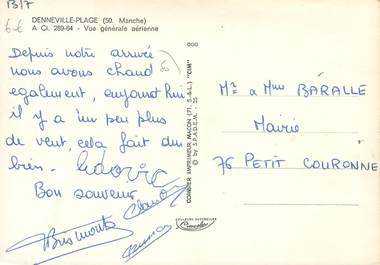 B17
6-6
DENNEVILLE-PLAGE (50. Manche)
A Ci. 289-64 - Vue générale aérienne
Depuis notre arrivée
nous avons chaud
egalement, aujourd'hui
il y a un peu plus
de vent, cela fait du
bien - Ludovic
Bon souvenir
COMBIER IMPRIMEUR MACON (71. S.-&-L.) "CIM"
© by S.P.A.D.E.M. - 35
Mr & Mme BARALLE
Mairie
76 PETIT COURONNE
COULEURS NATURELLES
Combier